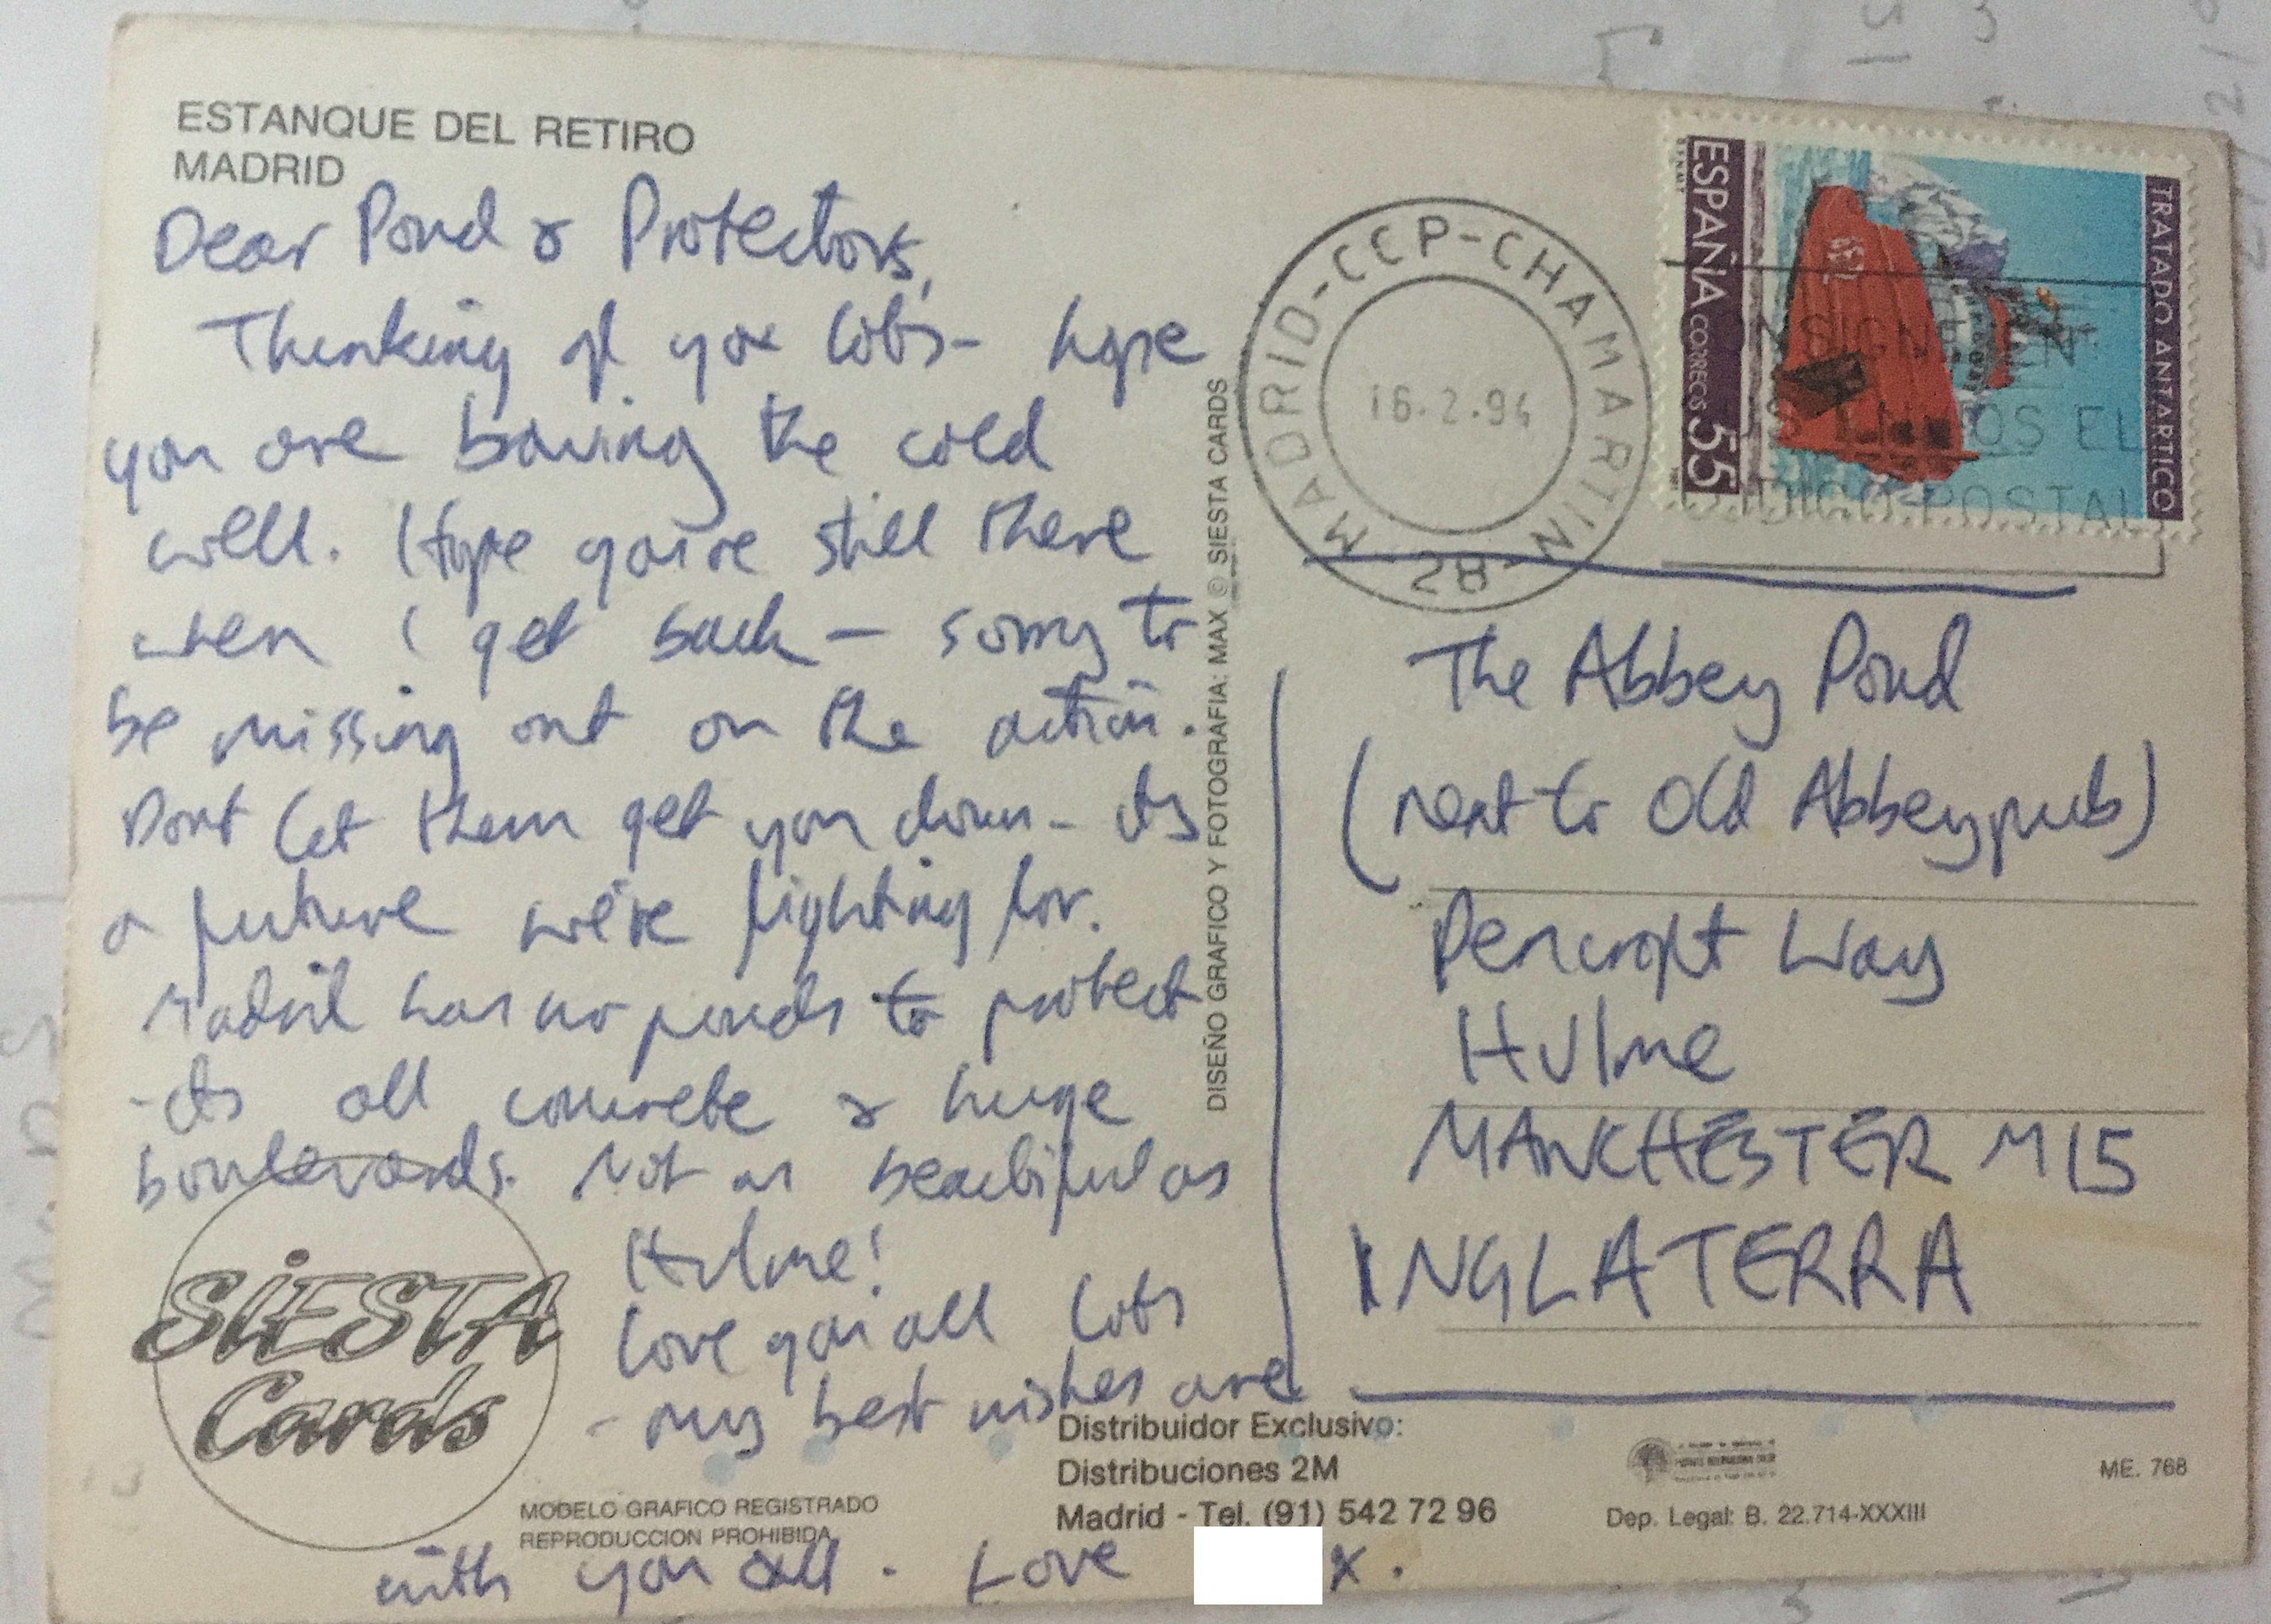 ESTANQUE DEL RETIRO
MADRID
Dear Pond & Protectors,
Thinking of you lots - hope
you are braving the cold
well. Hope you're still there
when I get back - sorry to
be missing out on the action.
Dont let them get you down - its
a future we're fighting for.
Madrid has no ponds to protect
- its all concrete & huge
boulevards. Not as beautiful as
Hulme!
Love you all lots
- my best wishes are
with you all. Love
x.
SIESTA
Cards
MODELO GRAFICO REGISTRADO
REPRODUCCION PROHIBIDA
DISEÑO GRAFICO Y FOTOGRAFIA: MAX © SIESTA CARDS
MADRID-CCP-CHAMARTIN
16.2.94
28
ESPAÑA CORREOS 55
TRATADO ANTARTICO
OS EL
POSTAL
The Abbey Pond
(next to Old Abbey pub)
Pencroft Way
Hulme
MANCHESTER M15
INGLATERRA
Distribuidor Exclusivo:
Distribuciones 2M
Madrid - Tel. (91) 542 72 96
Dep. Legal: B. 22.714-XXXIII
ME. 768